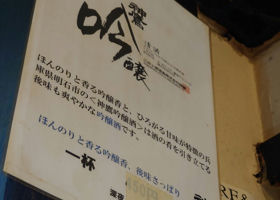 神鷹
吟醸
清酒
ほんのりと香る吟醸香と、ひろがる甘味が特徴の兵
庫県明石市の＜神鷹吟醸酒＞は酒の肴を引き立てる
後味も爽やかな吟醸酒です。
ほんのりと香る吟醸香、後味さっぱり
一杯
450円
RE&